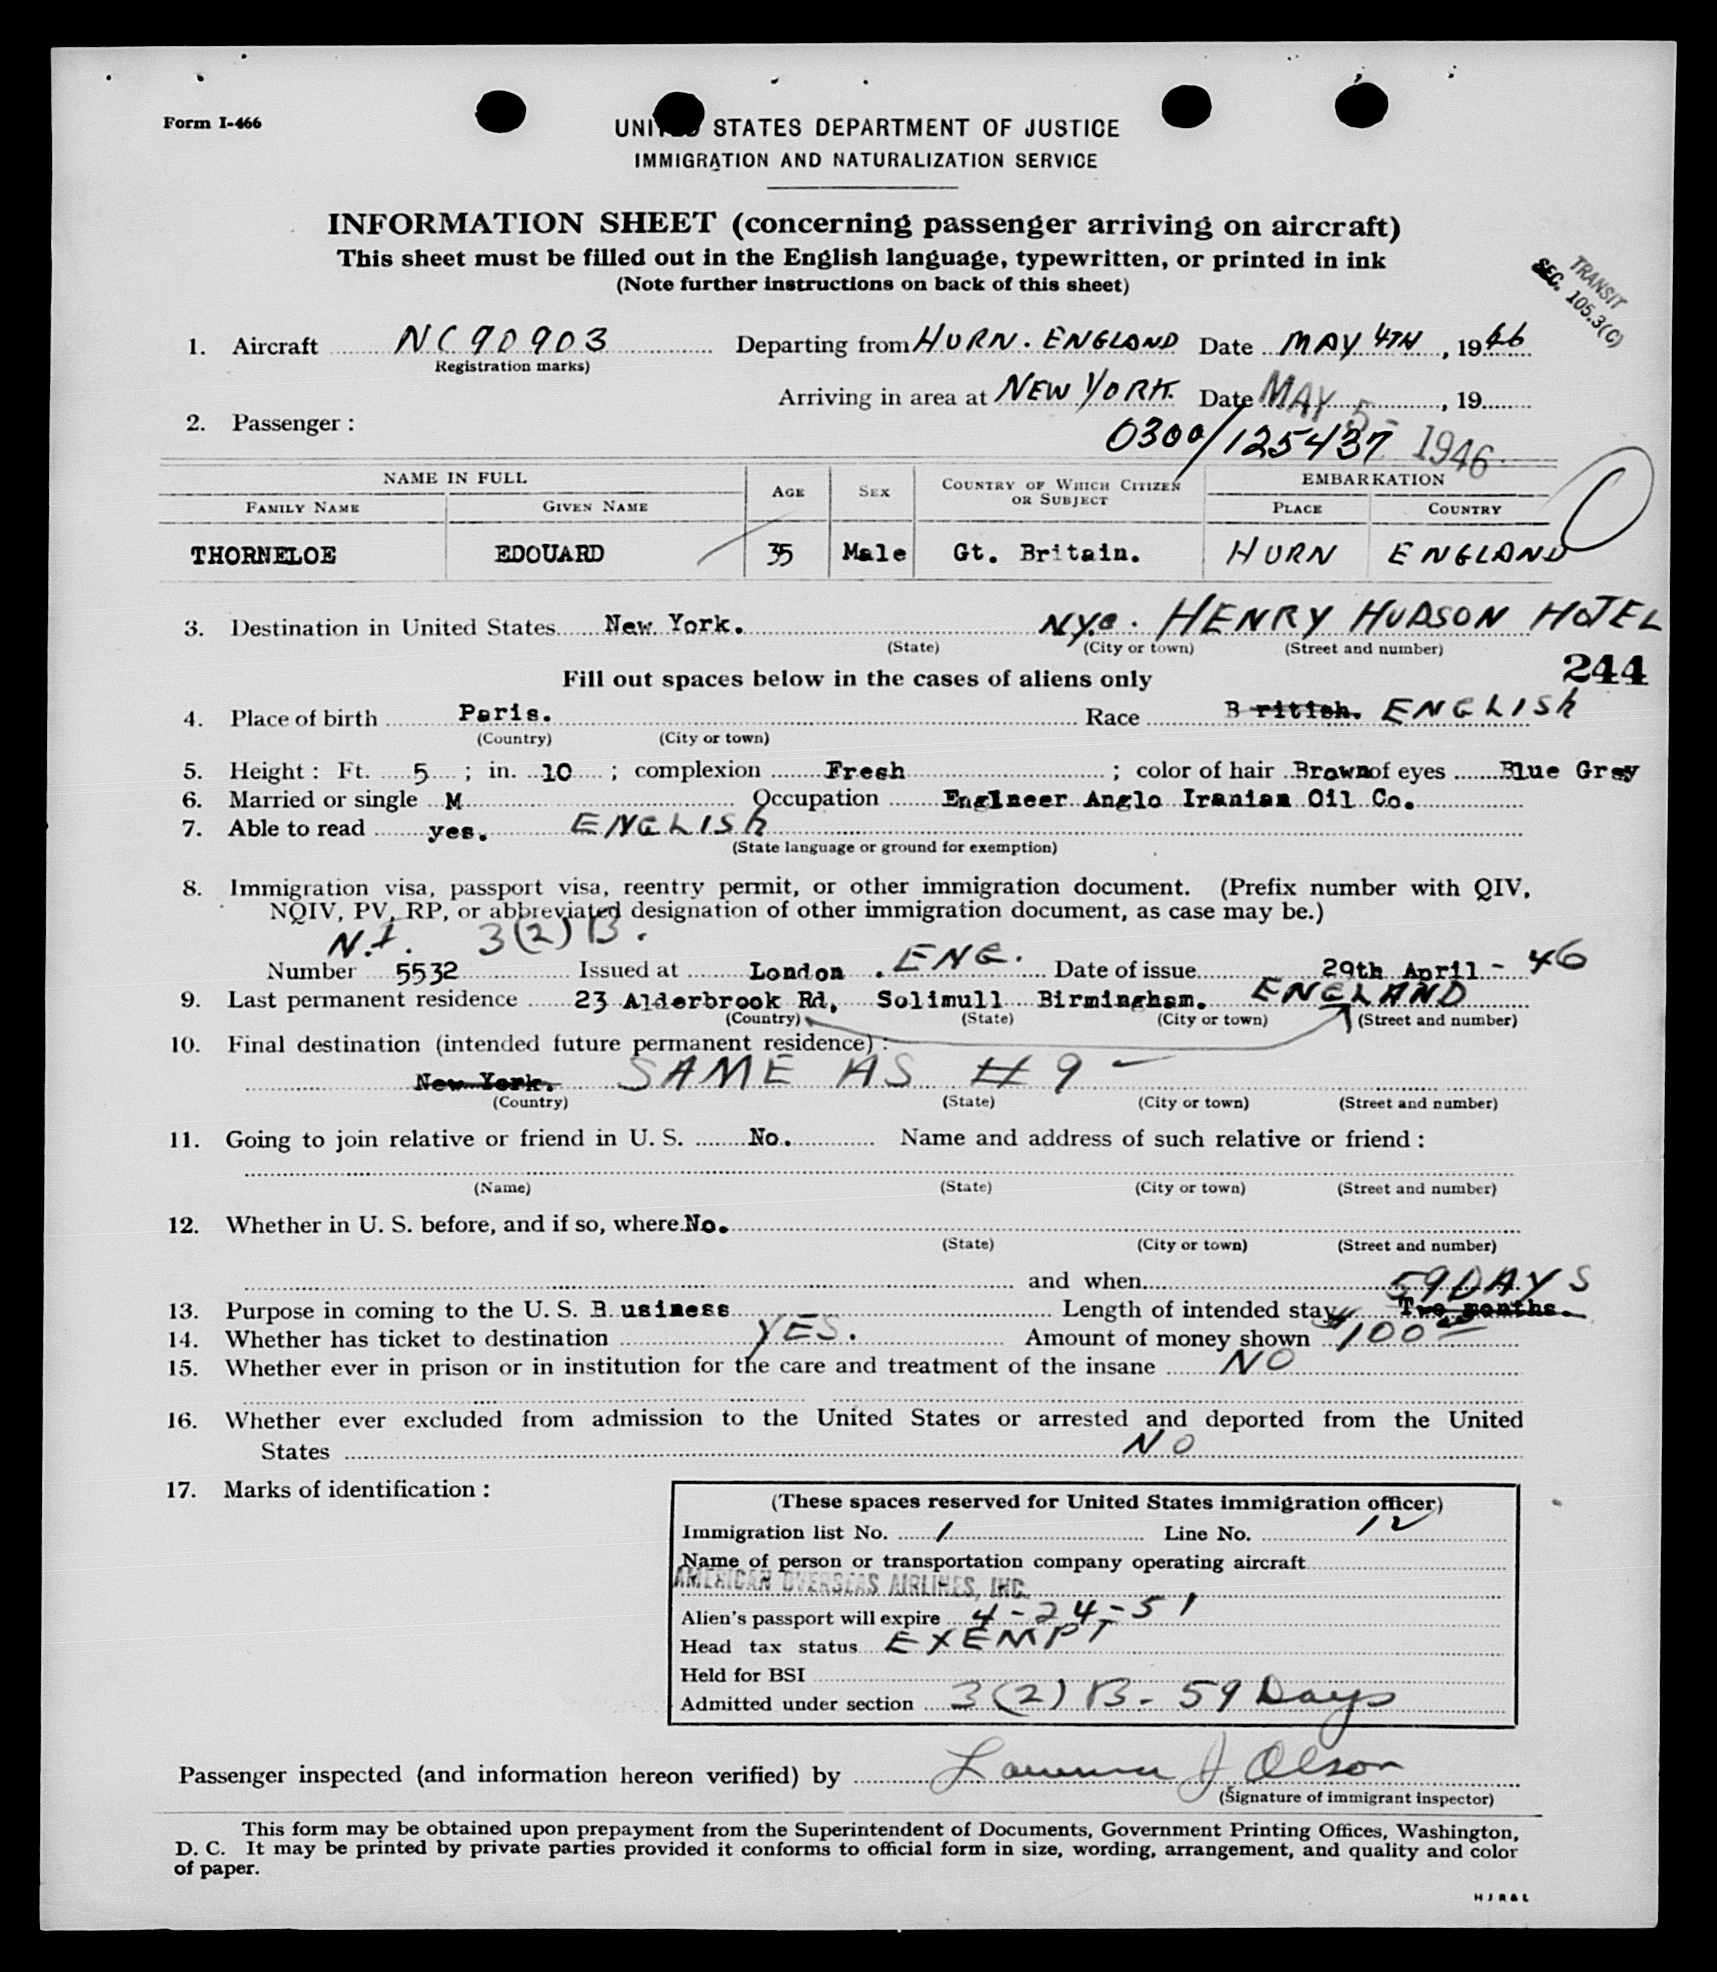 Form I-466
UNITED STATES DEPARTMENT OF JUSTICE
IMMIGRATION AND NATURALIZATION SERVICE
INFORMATION SHEET (concerning passenger arriving on aircraft)
This sheet must be filled out in the English language, typewritten, or printed in ink
(Note further instructions on back of this sheet)
TRANSIT
SEC. 105.3(C)
1. Aircraft NC90903 Departing from HURN. ENGLAND Date MAY 4TH, 1946
Registration marks)
Arriving in area at NEW YORK. Date MAY 5 - 1946, 19
2. Passenger :
0300/125437
NAME IN FULL AGE SEX COUNTRY OF WHICH CITIZEN OR SUBJECT EMBARKATION
FAMILY NAME GIVEN NAME PLACE COUNTRY
THORNELOE EDOUARD 35 Male Gt. Britain. HURN ENGLAND
3. Destination in United States New York. N.Y.C. HENRY HUDSON HOTEL
(State) (City or town) (Street and number)
244
Fill out spaces below in the cases of aliens only
4. Place of birth Paris. Race British. ENGLISH
(Country) (City or town)
5. Height : Ft. 5 ; in. 10 ; complexion Fresh ; color of hair Brown of eyes Blue Grey
6. Married or single M Occupation Engineer Anglo Iranian Oil Co.
7. Able to read yes. ENGLISH
(State language or ground for exemption)
8. Immigration visa, passport visa, reentry permit, or other immigration document. (Prefix number with QIV,
NQIV, PV, RP, or abbreviated designation of other immigration document, as case may be.)
N.I. 3(2)B.
Number 5532 Issued at London . ENG. Date of issue 29th April - 46
9. Last permanent residence 23 Alderbrook Rd, Solimull Birmingham. ENGLAND
(Country) (State) (City or town) (Street and number)
10. Final destination (intended future permanent residence) :
New York. SAME AS #9 -
(Country) (State) (City or town) (Street and number)
11. Going to join relative or friend in U. S. No. Name and address of such relative or friend :
(Name) (State) (City or town) (Street and number)
12. Whether in U. S. before, and if so, where No.
(State) (City or town) (Street and number)
and when
59 DAYS
13. Purpose in coming to the U. S. Business Length of intended stay Two months.
14. Whether has ticket to destination YES. Amount of money shown $100 00
15. Whether ever in prison or in institution for the care and treatment of the insane NO
16. Whether ever excluded from admission to the United States or arrested and deported from the United
States NO
17. Marks of identification :
(These spaces reserved for United States immigration officer)
Immigration list No. 1 Line No. 12
Name of person or transportation company operating aircraft
AMERICAN OVERSEAS AIRLINES, INC.
Alien's passport will expire 4-24-51
Head tax status EXEMPT
Held for BSI
Admitted under section 3(2)B. 59 Days
Passenger inspected (and information hereon verified) by J Olson
(Signature of immigrant inspector)
This form may be obtained upon prepayment from the Superintendent of Documents, Government Printing Offices, Washington,
D. C. It may be printed by private parties provided it conforms to official form in size, wording, arrangement, and quality and color
of paper.
HJR&L